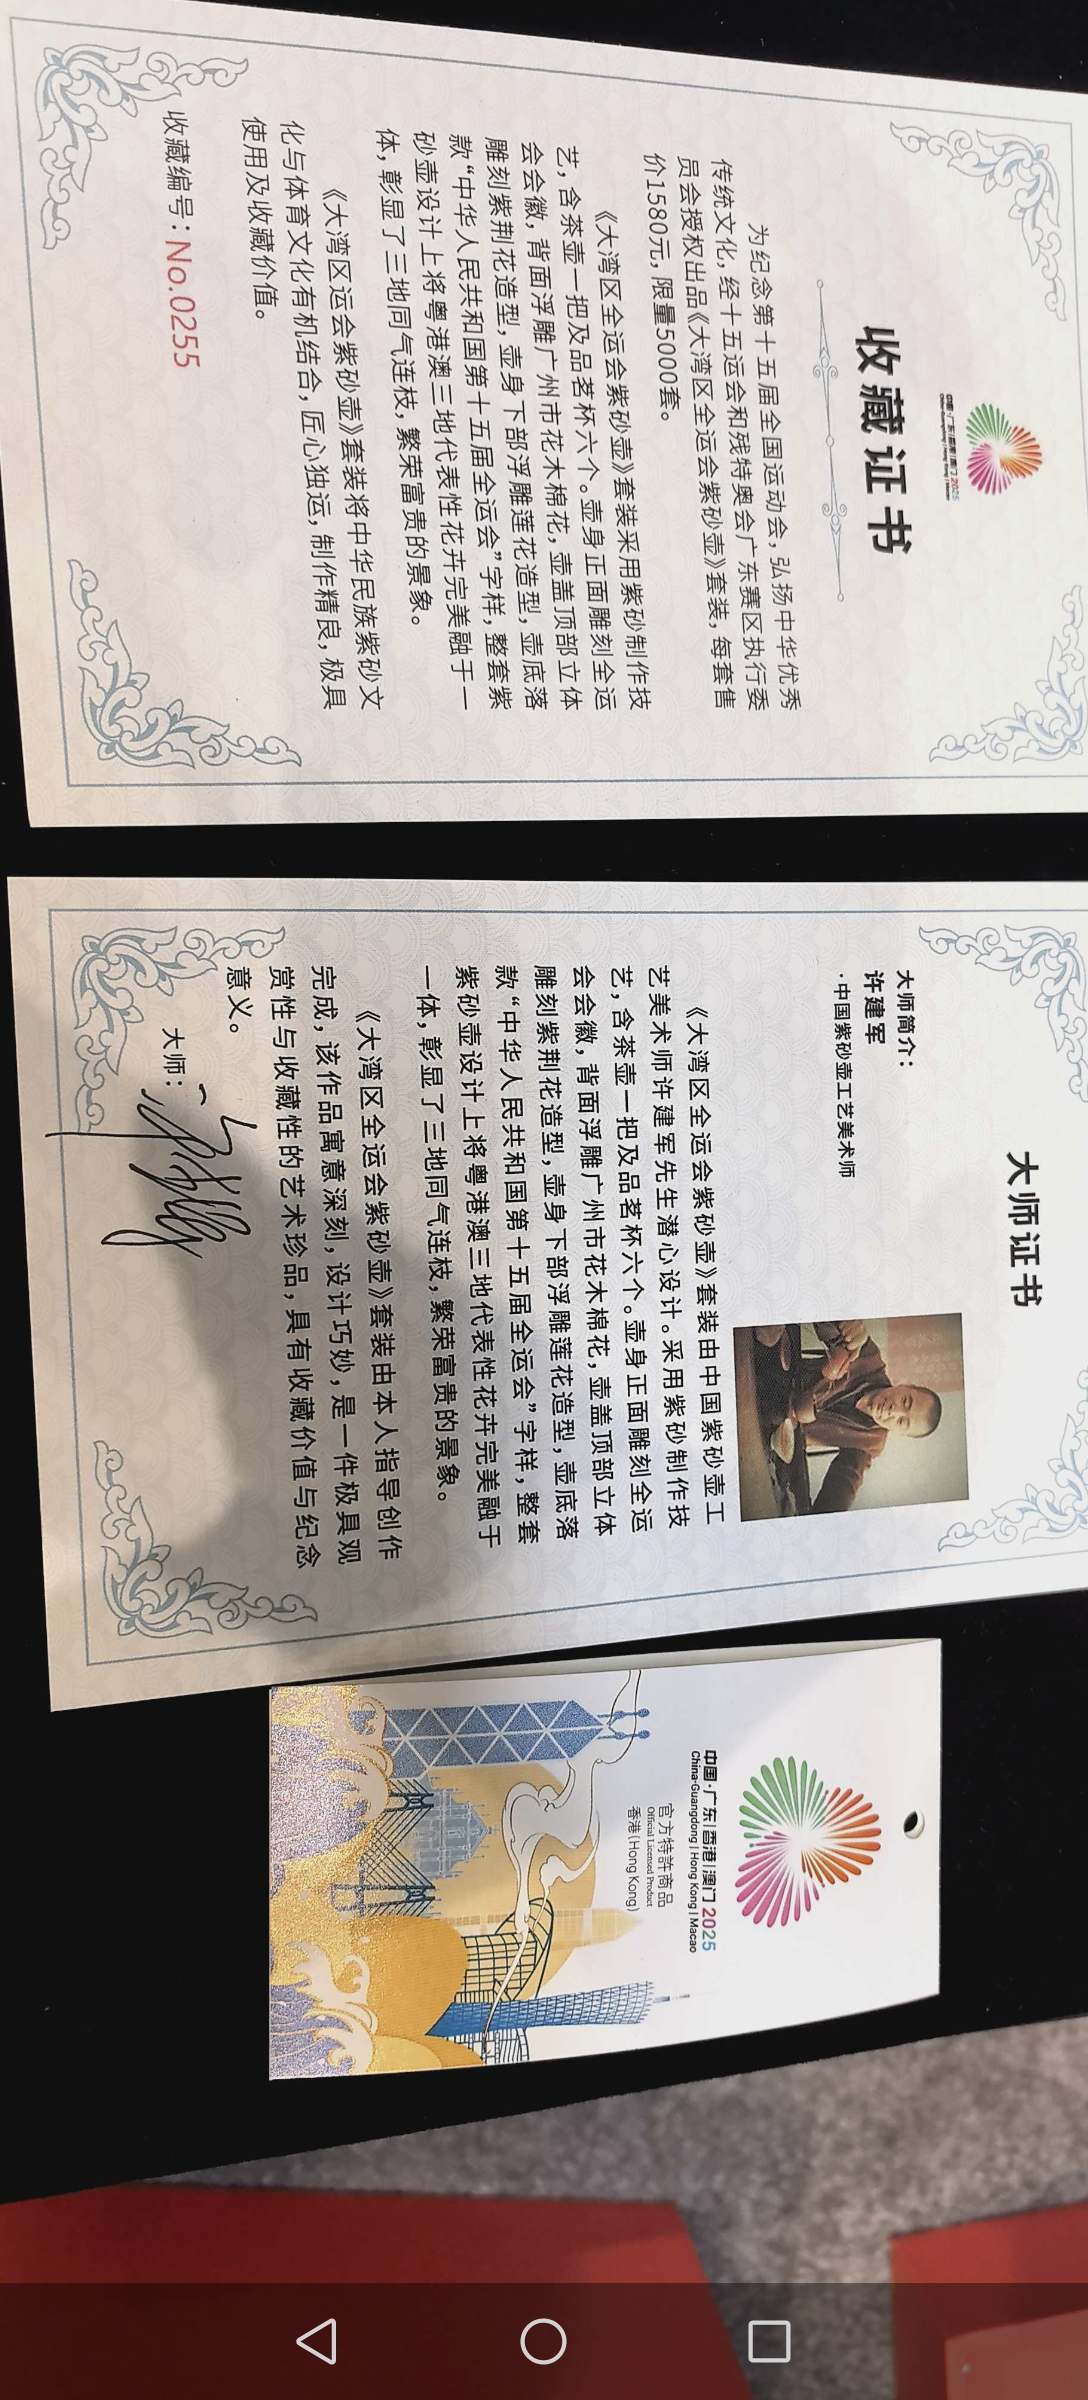 中国·广东|香港|澳门 2025
China·Guangdong | Hong Kong | Macao
收藏证书
为纪念第十五届全国运动会，弘扬中华优秀
传统文化，经十五运会和残特奥会广东赛区执行委
员会授权出品《大湾区全运会紫砂壶》套装，每套售
价1580元，限量5000套。
《大湾区全运会紫砂壶》套装采用紫砂制作技
艺，含茶壶一把及品茗杯六个。壶身正面雕刻全运
会会徽，背面浮雕广州市花木棉花，壶盖顶部立体
雕刻紫荆花造型，壶身下部浮雕莲花造型，壶底落
款“中华人民共和国第十五届全运会”字样，整套紫
砂壶设计上将粤港澳三地代表性花卉完美融于一
体，彰显了三地同气连枝，繁荣富贵的景象。
《大湾区运会紫砂壶》套装将中华民族紫砂文
化与体育文化有机结合，匠心独运，制作精良，极具
使用及收藏价值。
收藏编号：No.0255
大师证书
大师简介：
许建军
·中国紫砂壶工艺美术师
《大湾区全运会紫砂壶》套装由中国紫砂壶工
艺美术师许建军先生潜心设计。采用紫砂制作技
艺，含茶壶一把及品茗杯六个。壶身正面雕刻全运
会会徽，背面浮雕广州市花木棉花，壶盖顶部立体
雕刻紫荆花造型，壶身下部浮雕莲花造型，壶底落
款“中华人民共和国第十五届全运会”字样，整套
紫砂壶设计上将粤港澳三地代表性花卉完美融于
一体，彰显了三地同气连枝，繁荣富贵的景象。
《大湾区全运会紫砂壶》套装由本人指导创作
完成，该作品寓意深刻，设计巧妙，是一件极具观
赏性与收藏性的艺术珍品，具有收藏价值与纪念
意义。
大师：
中国·广东|香港|澳门 2025
China·Guangdong | Hong Kong | Macao
官方特許商品
Official Licensed Product
香港(Hong Kong)